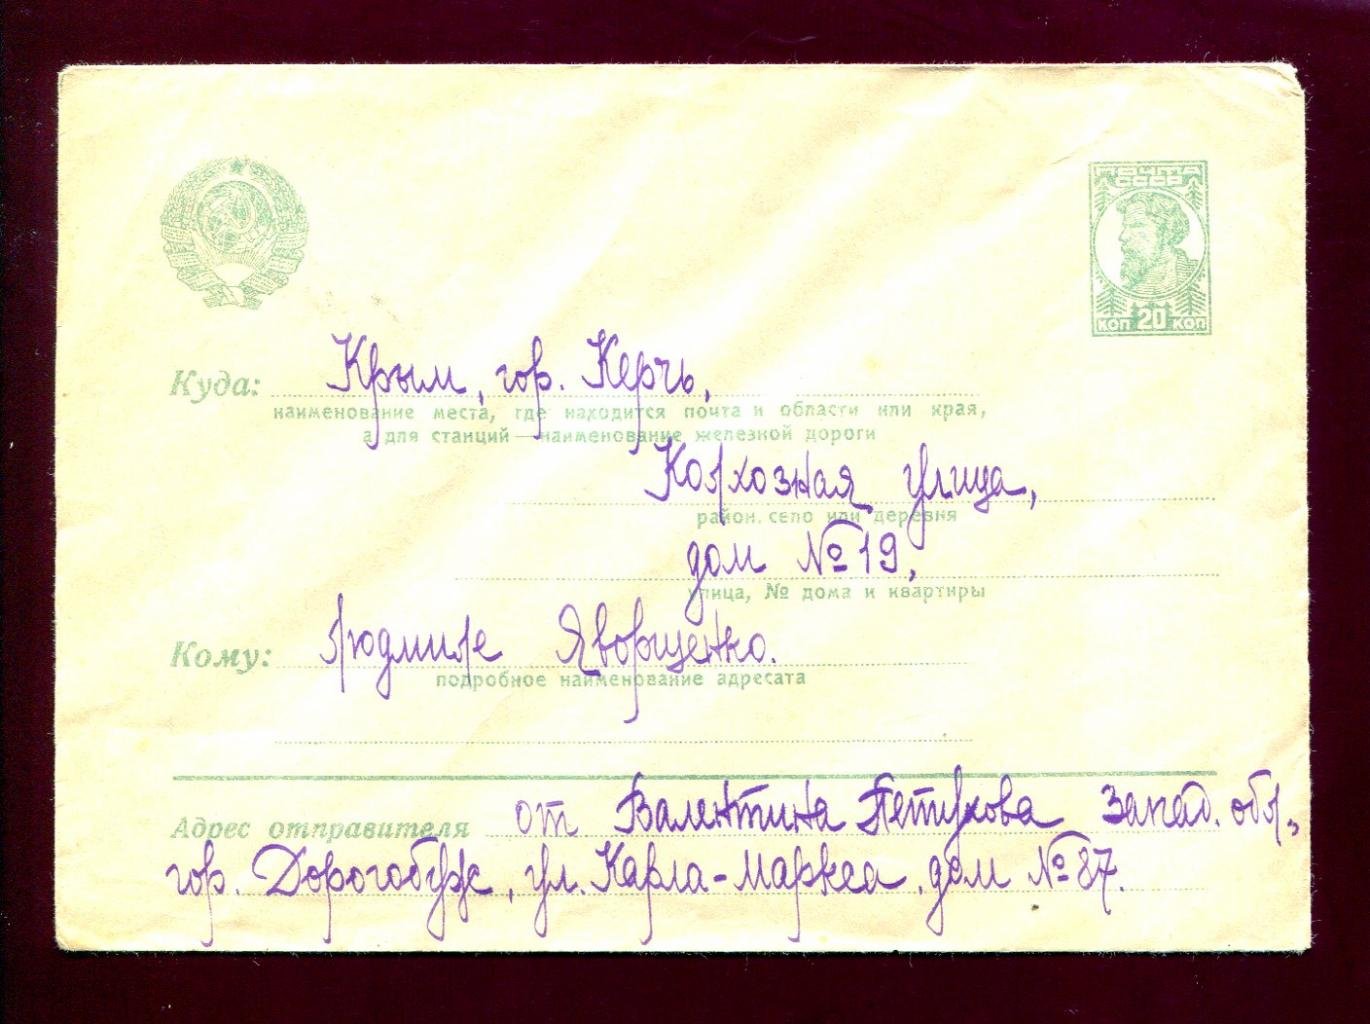 ПОЧТА
СССР
КОП 20 КОП
Куда: Крым, гор. Керчь,
наименование места, где находится почта и области или края,
а для станций — наименование железной дороги
Колхозная улица,
район, село или деревня
дом № 19,
улица, № дома и квартиры
Кому: Людмиле Яворщенко.
подробное наименование адресата
Адрес отправителя от Валентина Петухова Запад. обл.,
гор. Дорогобуж, ул. Карла-Маркса, дом № 87.